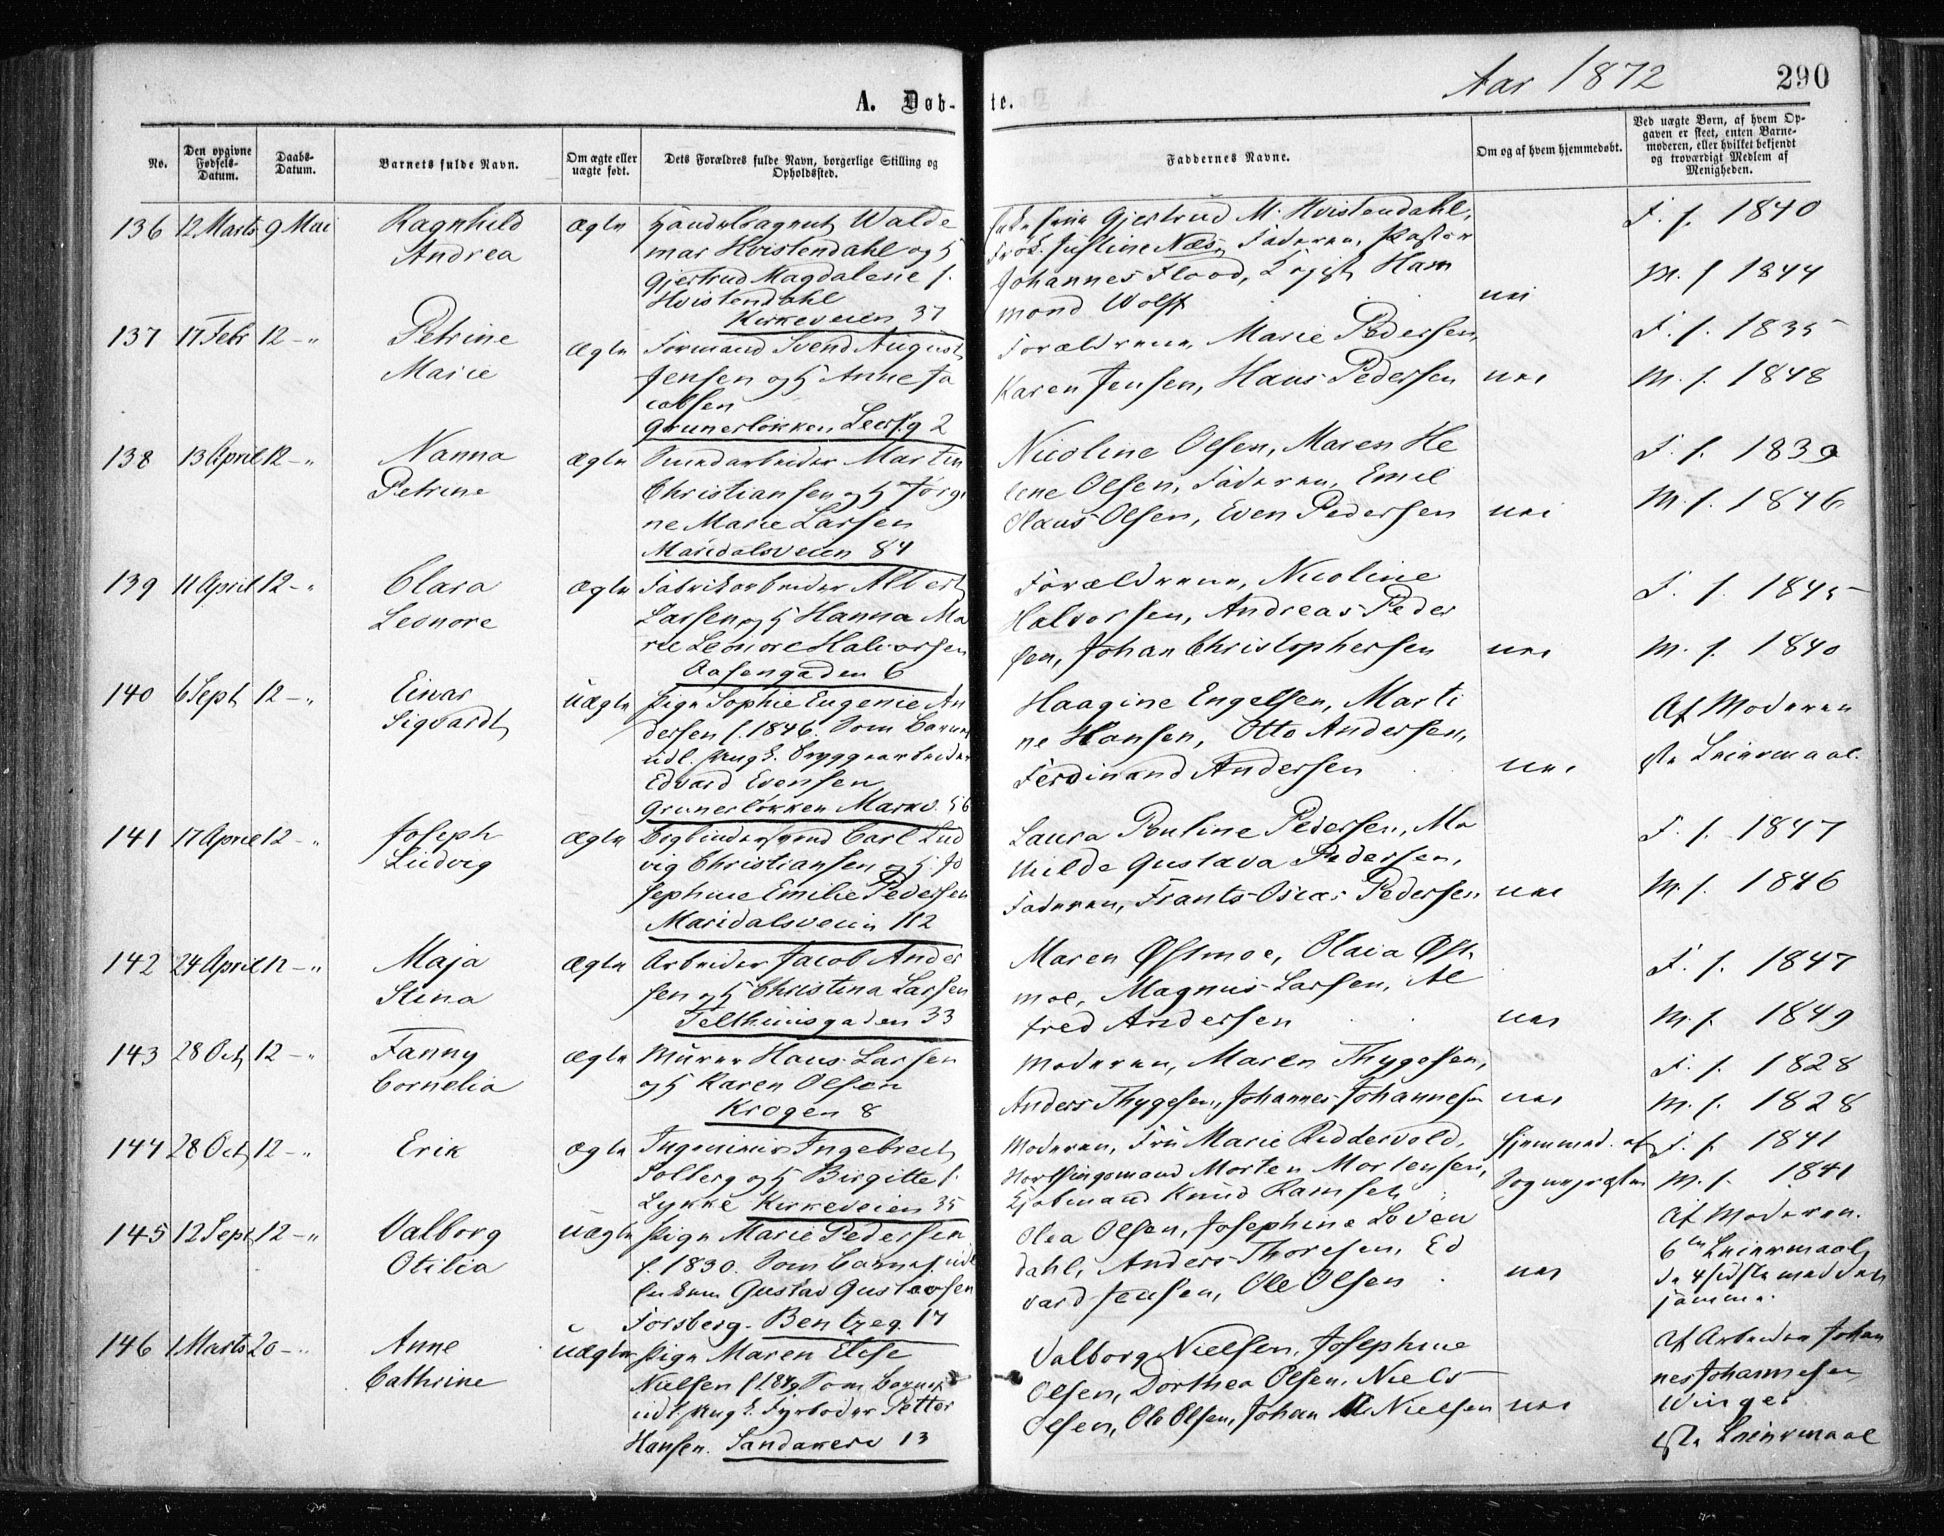 Aar 1872
290
A. Døb-
te.
No.
Den opgivne Fødsels-Datum.
Daabs-Datum.
Barnets fulde Navn.
Om ægte eller uægte født.
Dets Forældres fulde Navn, borgerlige Stilling og Opholdssted.
Faddernes Navne.
Om og af hvem hjemmedøbt.
Ved uægte Børn, af hvem Opgaven er skeet, enten Barnemoderen, eller hvilket bekjendt og troværdigt Medlem af Menigheden.
136 12 Marts 9 Mai Ragnhild ægte Handelsagent Walde
Andrea mar Hvistendahl og H
Gjertrud Magdalene f.
Hvistendahl
Kirkeveien 37
Gjertrud M. Hvistendahl, F. f. 1840
Frøk. Justine Næs, Faderen, Pastor
Johannes Flood, Ham M. f. 1844
mond Wolff nei
137 17 Febr 12 - " Petrine ægte Formand Svend August
Marie Jensen og H Anne Ja
cobsen
Grunerløkken, Leers. g 2
Forældrene, Marie Pedersen, F. f. 1835
Karen Jensen, Hans Pedersen nei M. f. 1848
138 13 April 12 - " Nanna ægte Martin
Petrine Christiansen og H Jørgi
ne Marie Larsen
Maridalsveien 84
Nicoline Olsen, Maren He F. f. 1839
lene Olsen, Faderen, Emil
Olaus Olsen, Even Pedersen nei M. f. 1846
139 11 April 12 - " Clara ægte Fabrikarbeider Albert
Leonore Larsen og H Hanna Ma
rie Leonore Halvorsen
Aasengaden 6
Forældrene, Nicoline F. f. 1845
Halvorsen, Andreas Peder
sen, Johan Christophersen nei M. f. 1840
140 6 Sept 12 - " Einar uægte Pige Sophie Eugenie An
Sigvardt dersen f. 1846. Som Barnef.
udl. Ungk. Bryggearbeider
Edvard Evensen
Grunerløkken Markv. 56
Haagine Engelsen, Marti Af Moderen
ne Hansen, Otto Andersen, 1ste Leiermaal.
Ferdinand Andersen nei
141 17 April 12 - " Joseph ægte Bogbindersvend Carl Lud
Ludvig vig Christiansen og H Jo
sephine Emilie Pedersen
Maridalsveien 112
Laura Pauline Pedersen, Ma F. f. 1847
thilde Gustava Pedersen,
Faderen, Frants Oscar Pedersen nei M. f. 1846
142 24 April 12 - " Maja ægte Arbeider Jacob Ander
Stina sen og H Christina Larsen
Telthusgaden 33
Maren Østmoe, Olaia Øst F. f. 1847
moe, Magnus Larsen, Al
fred Andersen nei M. f. 1849
143 28 Oct 12 - " Fanny ægte Murer Hans Larsen
Cornelia og H Karen Olsen
Krogen 8
Moderen, Maren Thygesen, F. f. 1828
Anders Thygesen, Johannes Johannesen nei M. f. 1828
144 28 Oct 12 - " Erik ægte Ingeniør Ingebrect
Solberg og H Birgitte f.
Lykke Kirkeveien 35
Moderen, Fru Marie Riddervold, hjemmed. af F. f. 1841
Storthingsmand Morten Mortensen, Sognepræsten M. f. 1841
Kjøbmand Knud Ramseth
145 12 Sept 12 - " Valborg uægte Pige Marie Pedersen
Otilia f. 1830. Som Barnef. udl
Gustav Gustavsen
Forsberg. Bentzeg. 17
Olea Olsen, Josephine Løven Af Moderen.
dahl, Anders Thoresen, Ed 6te Leiermaal,
vard Jensen, Ole Olsen nei de 4 sidste med den
samme.
146 1 Marts 20 - " Anne uægte Pige Maren Elise
Cathrine Nielsen f. 1849 Som Barnef.
udl. Ungk. Fyrbøder Petter
Hansen. Sandakerv 13
Valborg Nielsen, Josephine Af Arbeider Johan
Olsen, Dorthea Olsen, Niels nes Johannesen
Olsen, Ole Olsen, Johan Nielsen nei Winger
1ste Leiermaal